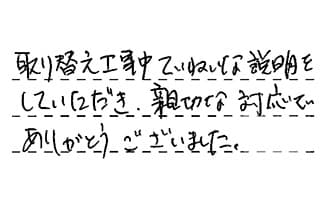 取り替え工事中ていねいな説明を
していただき、親切な対応で
ありがとうございました。